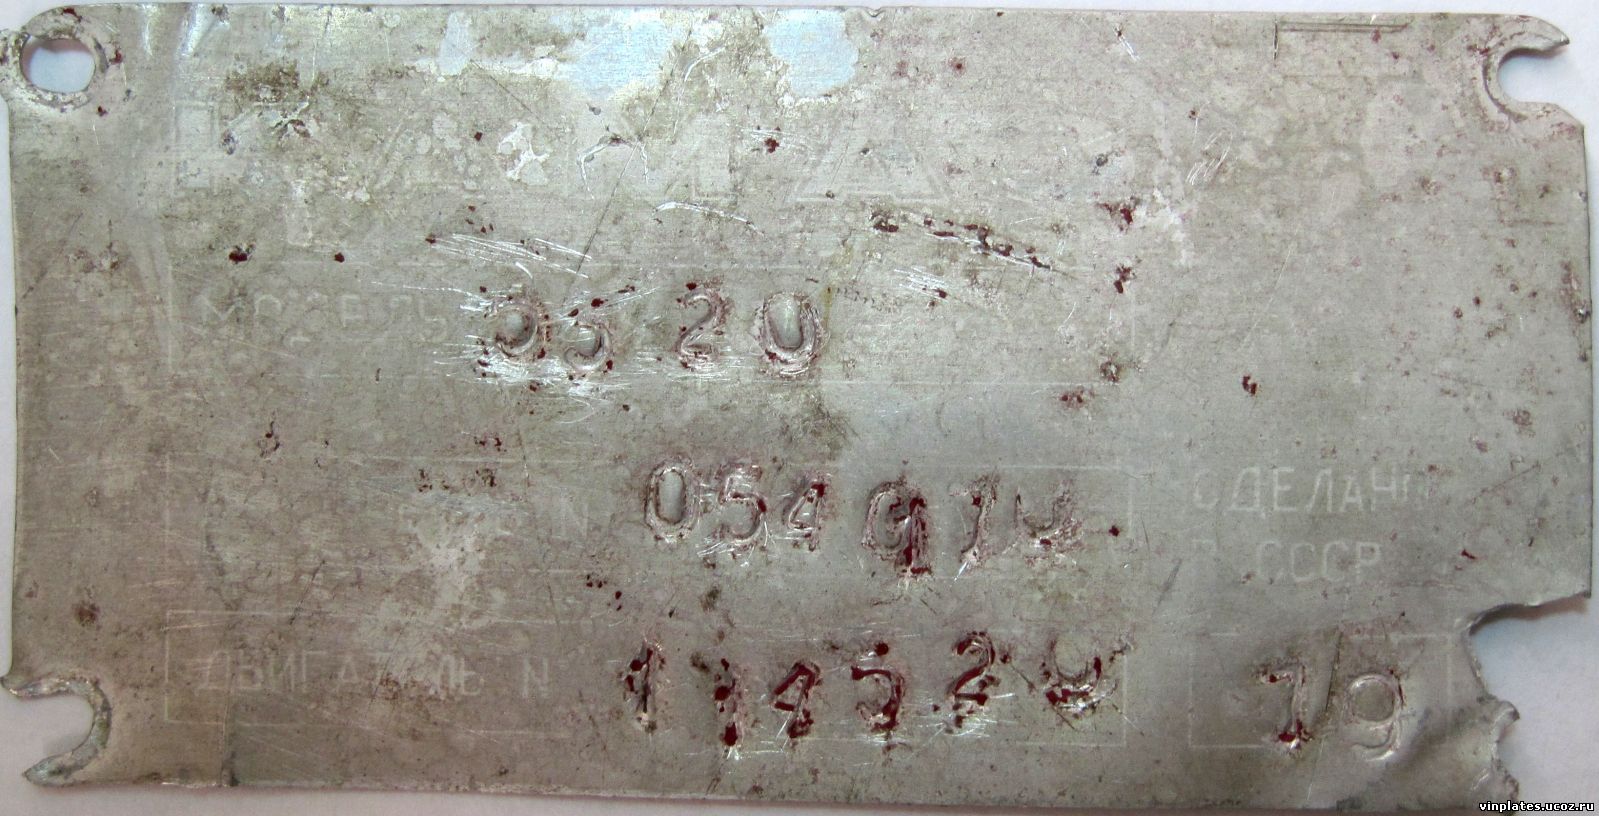 КАМАЗ
МОДЕЛЬ 5320
N 054970
СДЕЛАНО
В СССР
ДВИГАТЕЛЬ N 114520
79
vinplates.ucoz.ru